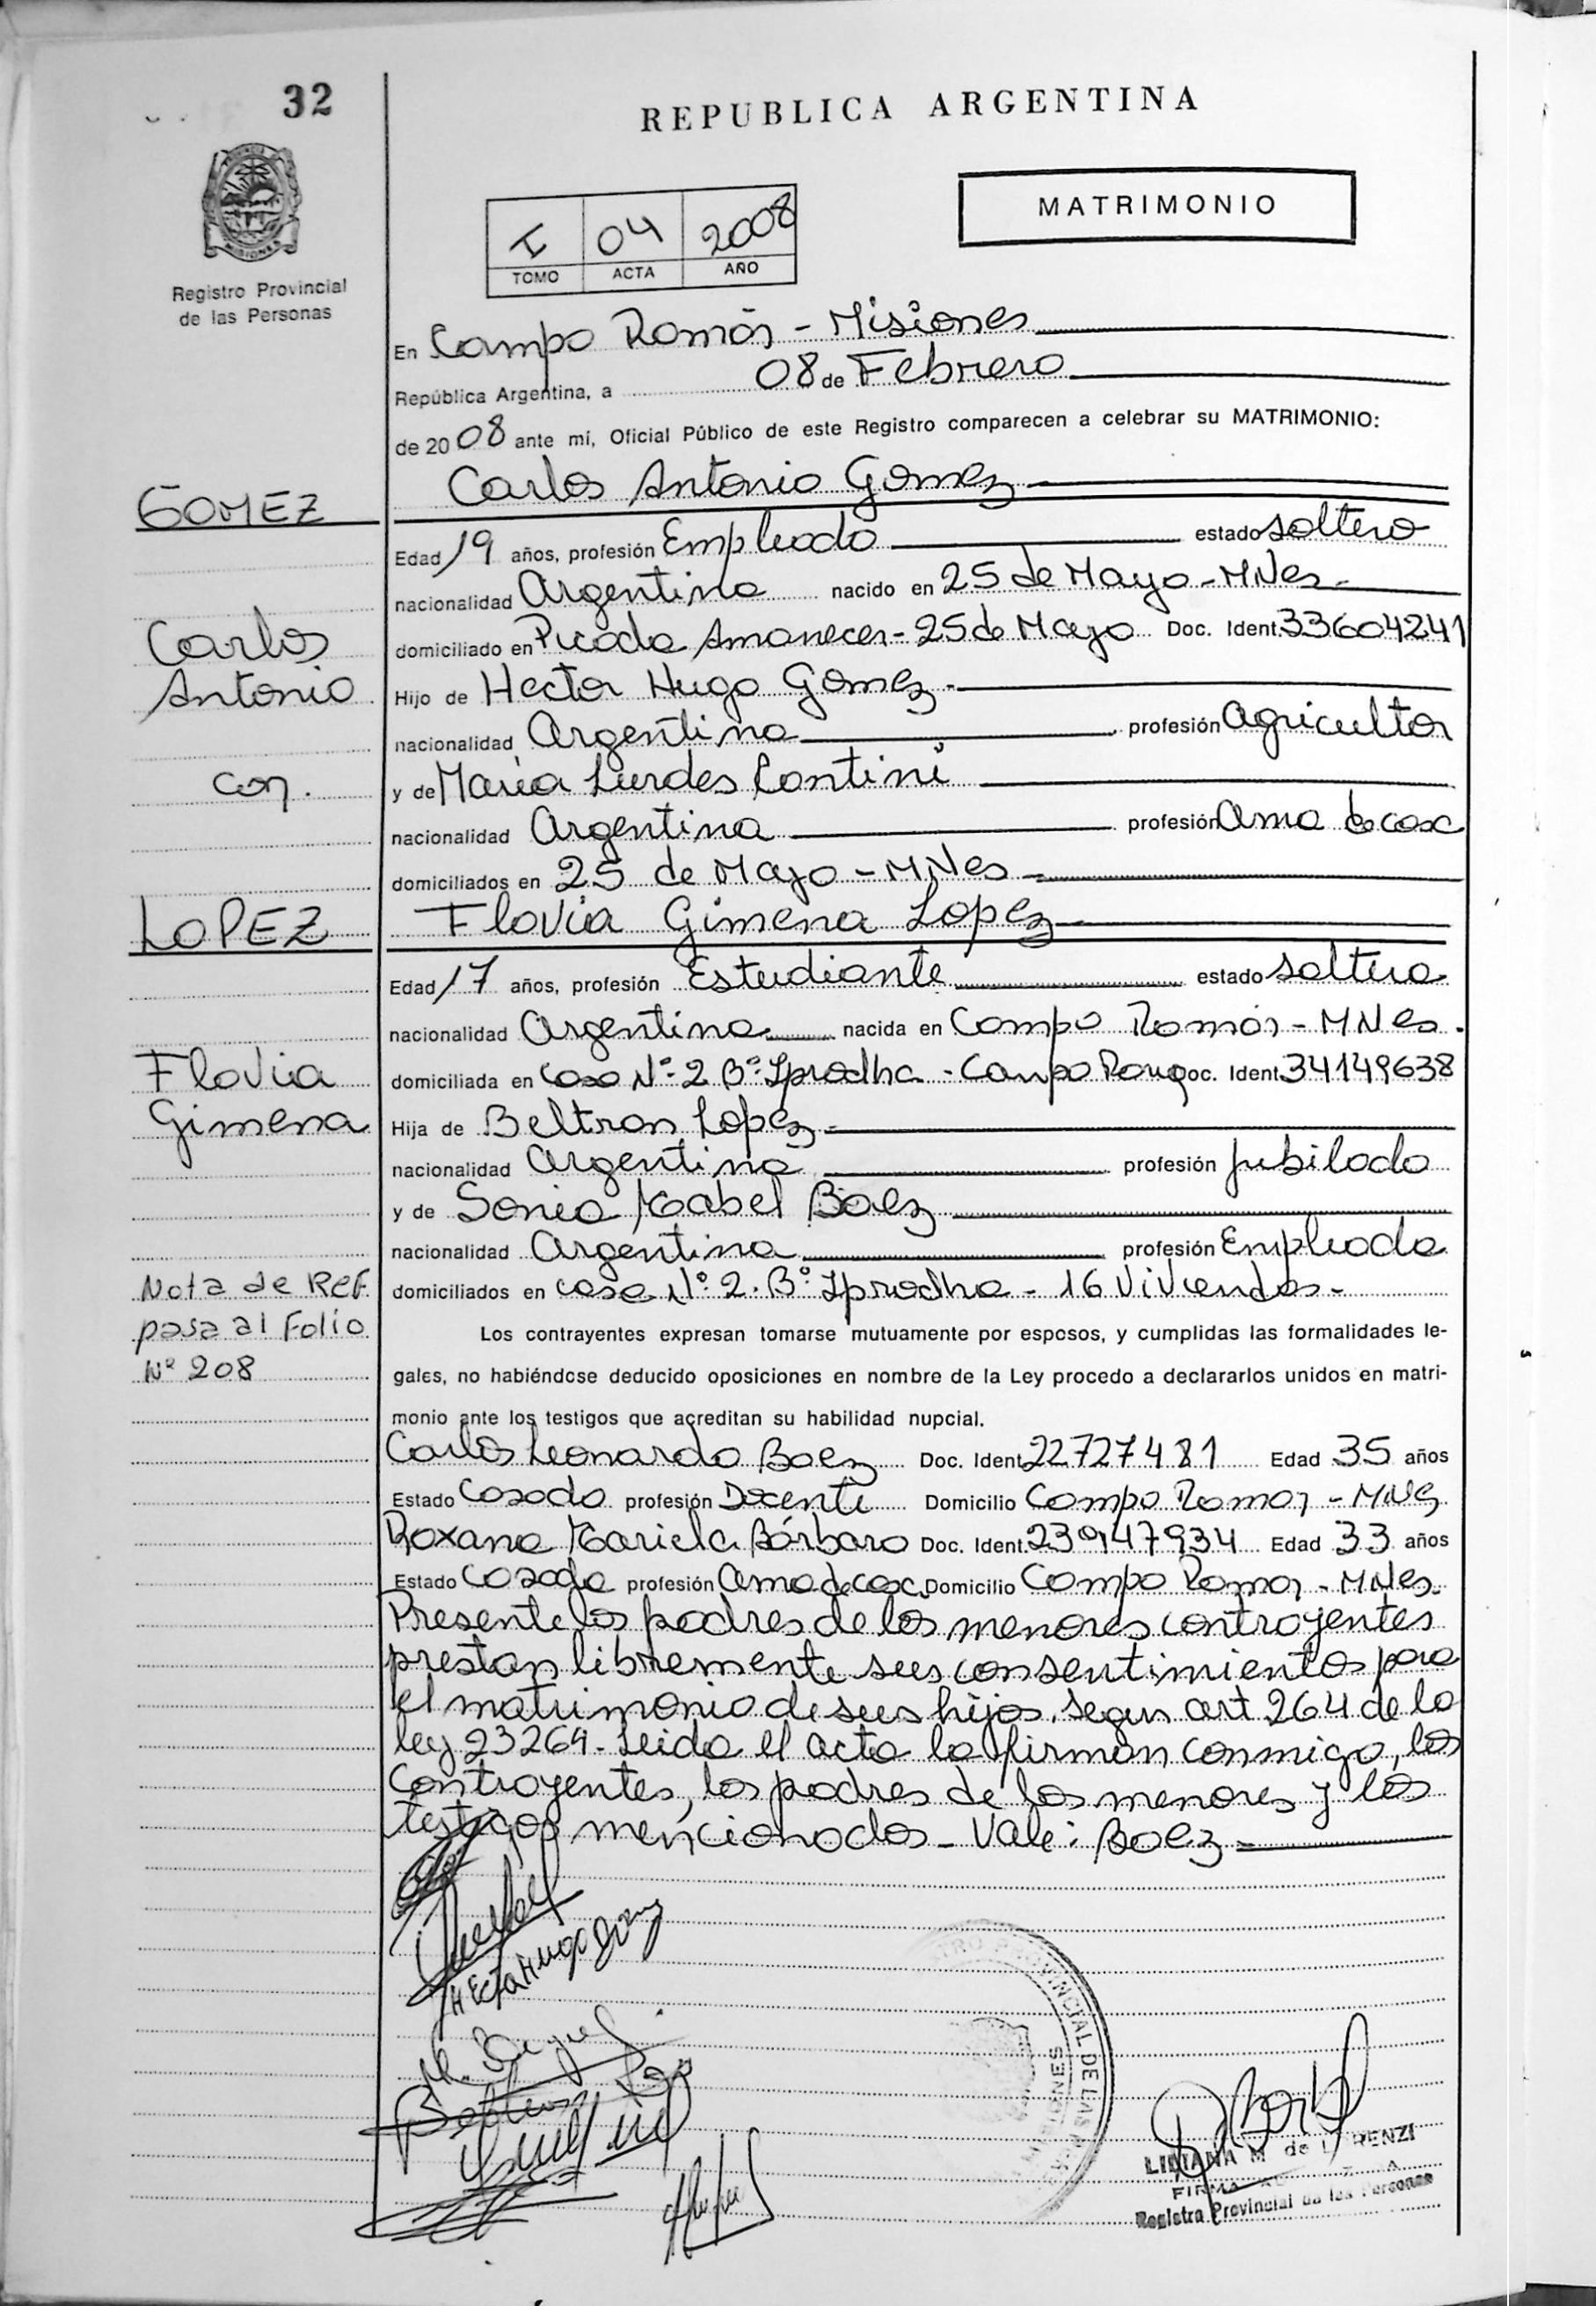 32
REPUBLICA ARGENTINA
MATRIMONIO
I 04 2008
TOMO ACTA AÑO
Registro Provincial
de las Personas
En Campo Ramón - Misiones
República Argentina, a 08 de Febrero
de 2008 ante mí, Oficial Público de este Registro comparecen a celebrar su MATRIMONIO:
GOMEZ
Carlos Antonio Gomez
Edad 19 años, profesión Empleado estado soltero
nacionalidad Argentina nacido en 25 de Mayo - MNes -
Carlos
domiciliado en Picada Amanecer - 25 de Mayo Doc. Ident. 33604241
Antonio
Hijo de Hector Hugo Gomez -
nacionalidad Argentina profesión Agricultor
con.
y de Maria Lurdes Contini
nacionalidad Argentina profesión Ama de casa
domiciliados en 25 de Mayo - MNes -
LOPEZ
Flavia Gimena Lopez
Edad 17 años, profesión Estudiante estado soltera
nacionalidad Argentina nacida en Campo Ramón - MNes.
Flavia
domiciliada en Casa Nº 2 Bº Iprodha - Campo Ramon Doc. Ident. 34149638
Gimena
Hija de Beltran Lopez -
nacionalidad Argentina profesión Jubilado
y de Sonia Mabel Baez
nacionalidad Argentina profesión Empleada
Nota de Ref.
domiciliados en casa Nº 2. Bº Iprodha - 16 Viviendas -
pasa al Folio
Nº 208
Los contrayentes expresan tomarse mutuamente por esposos, y cumplidas las formalidades le-
gales, no habiéndose deducido oposiciones en nombre de la Ley procedo a declararlos unidos en matri-
monio ante los testigos que acreditan su habilidad nupcial.
Carlos Leonardo Baez Doc. Ident. 22727481 Edad 35 años
Estado Casado profesión Docente Domicilio Campo Ramon - MNes
Roxana Mariela Bárbaro Doc. Ident. 23947934 Edad 33 años
Estado Casada profesión Ama de casa Domicilio Campo Ramon - MNes.
Presente los padres de los menores contrayentes
prestan libremente sus consentimientos para
el matrimonio de sus hijos, segun art 264 de la
ley 23264 - Leida el acta la firman conmigo, los
contrayentes, los padres de los menores y los
testigos mencionados - Vale: Baez -
Registro Provincial de las Personas